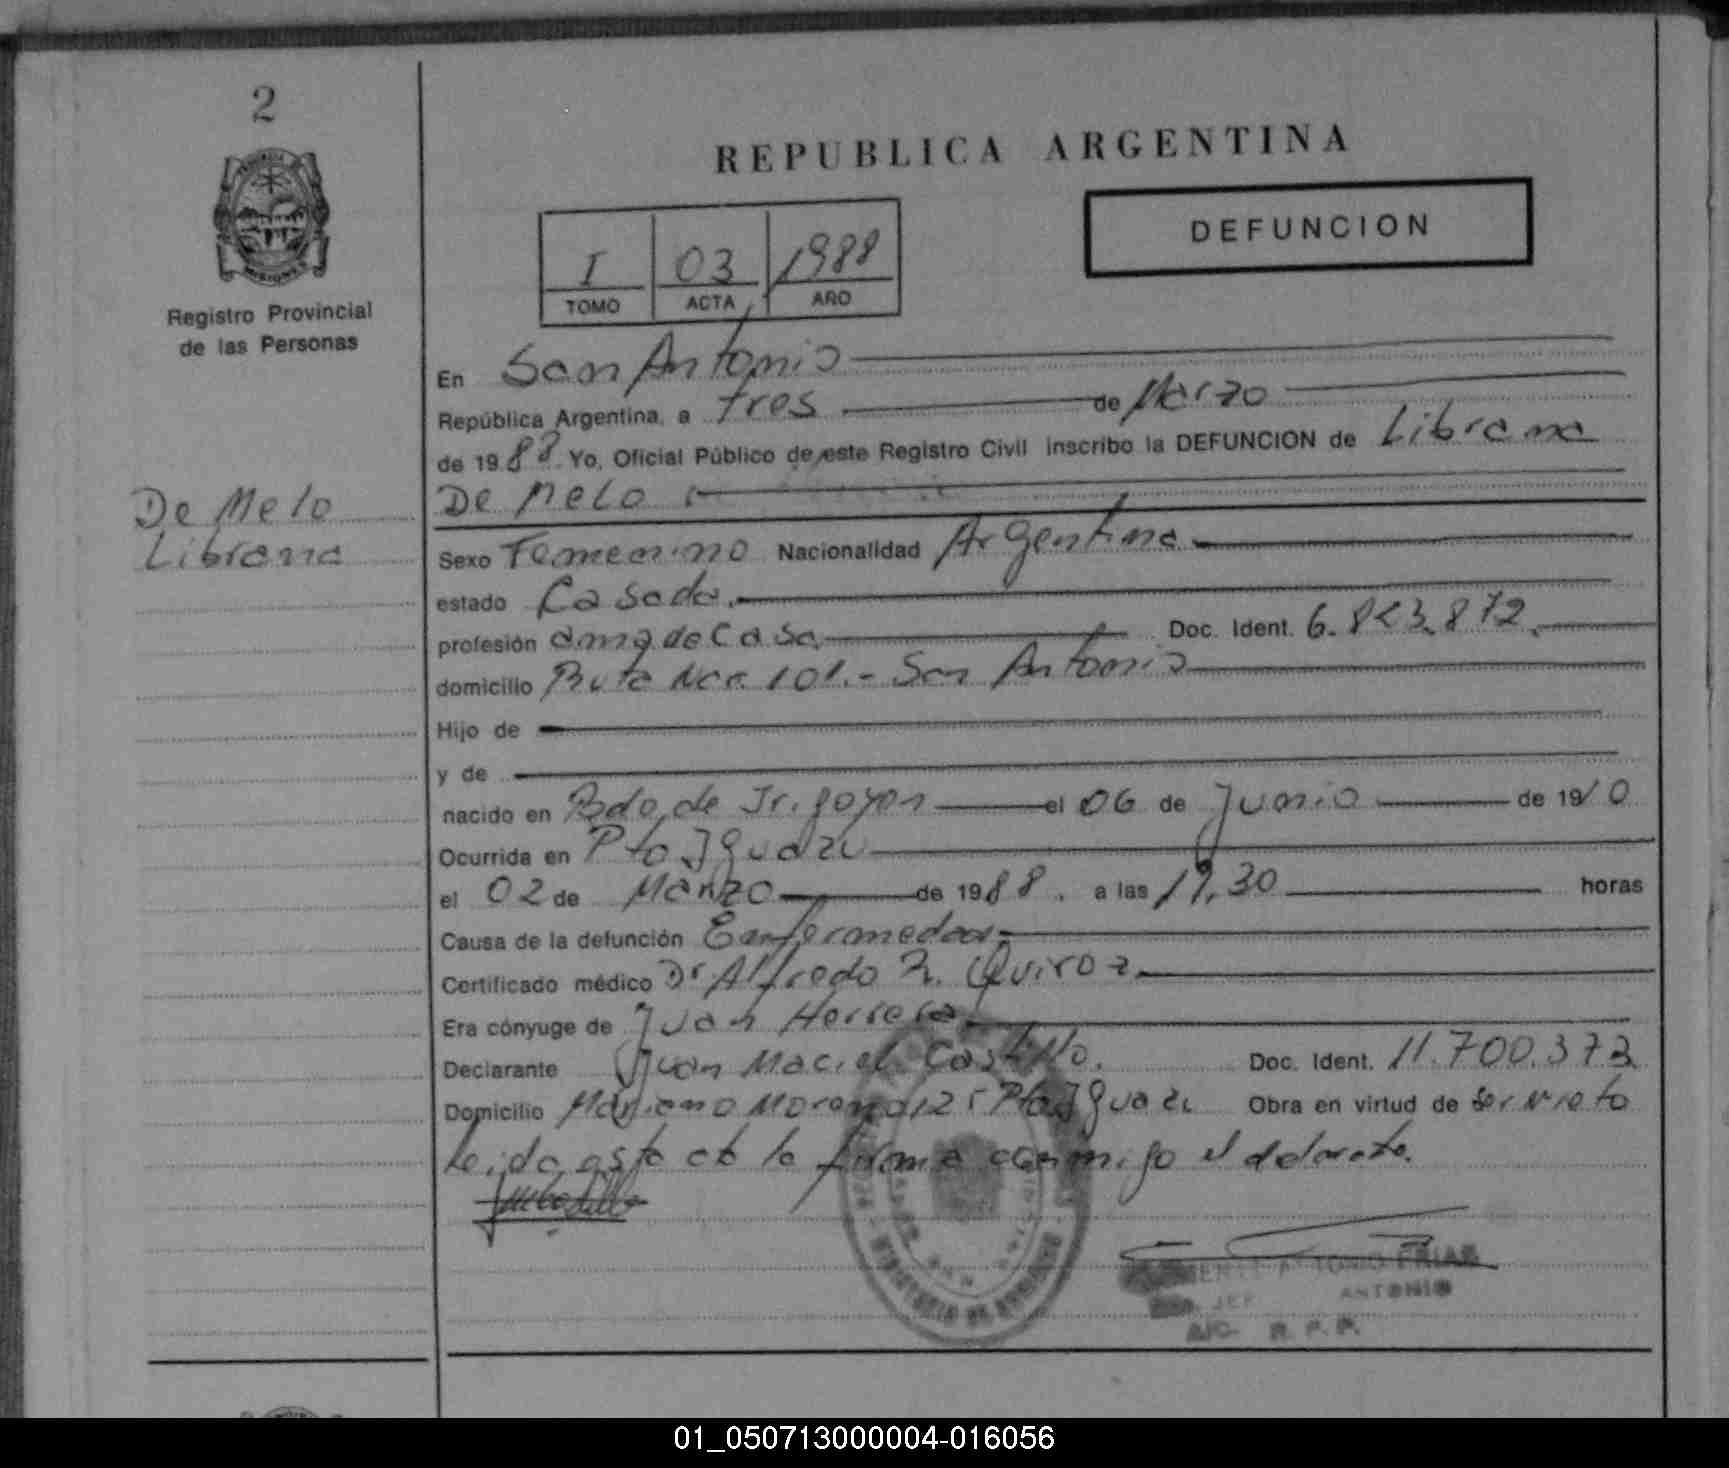 2
REPUBLICA ARGENTINA
DEFUNCION
I 03 1988
TOMO ACTA AÑO
MISIONES
Registro Provincial
de las Personas
De Melo
Librana
En San Antonio
República Argentina, a tres de Marzo
de 1988 Yo, Oficial Público de este Registro Civil inscribo la DEFUNCION de Librana
De Melo
Sexo Femenino Nacionalidad Argentina
estado Casada.
profesión ama de Casa. Doc. Ident.
domicilio Ruta Nro. 101.- San Antonio
Hijo de
y de
nacido en Bdo de Irigoyen el 06 de Junio de 1910
Ocurrida en Pto Iguazu
el 02 de Marzo de 1988. a las 19,30 horas
Causa de la defunción Enfermedad
Certificado médico Dr Alfredo R. Quiroz
Era cónyuge de Juan Herrera
Declarante Juan Maciel Castillo. Doc. Ident. 11.700.373
Domicilio Mariano Moreno Pto Iguazu Obra en virtud de ser nieto
Leida esta acta la firma conmigo el declarante.
ANTONIO FRIAS
ANTONIO
R. P. P.
01_050713000004-016056